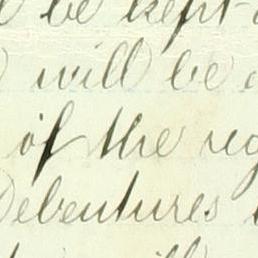 be kept
will be
of the reg
Debentures